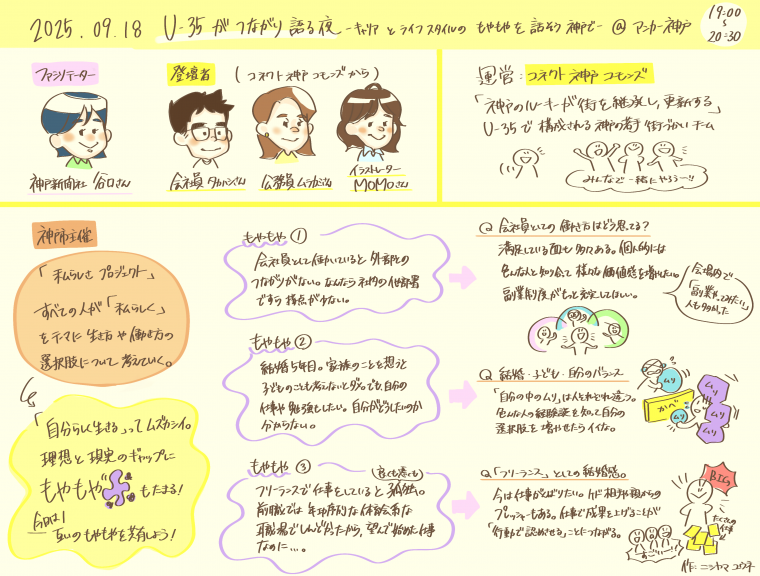 2025.09.18 U-35がつながり語る夜 -キャリアとライフスタイルのもやもやを話そう神戸で- @アンカー神戸
19:00
〜
20:30
ファシリテーター
神戸新聞社 谷口さん
登壇者 (コネクト神戸コモンズから)
会社員 タカハシくん
公務員 ムラカミくん
イラストレーター
MOMOさん
運営:コネクト神戸コモンズ
「神戸のルーキーが街を継承し、更新する」
U-35で構成される神戸の若手街づかいチーム
みんなで一緒にやろう〜!!
神戸市主催
「私らしさプロジェクト」
すべての人が「私らしく」
をテーマに生き方や働き方の
選択肢について考えていく。
「自分らしく生きる」ってムズカシイ。
理想と現実のギャップに
もやもやが
もたまる!
今日は!
互いのもやもやを共有しよう!
もやもや①
会社員として働いていると外部との
つながりがない。なんなら社内の他部署
ですら接点が少ない。
もやもや②
結婚5年目。家族のことを想うと
子どものことも考えないとダメ。でも、自分の
仕事や勉強もしたい。自分がどうしたいのか
分からない。
もやもや③
(良くも悪くも)
フリーランスで仕事をしていると孤独。
前職では年功序列な体育会系な
職場でしんどかったから、望んで始めた仕事
なのに…。
Q 会社員としての働き方はどう思ってる?
満足している面も多々ある。個人的には
色んな人と知り合って様々な価値感を増やしたい。
副業制度がもっと充実してほしい。
会場内で
「副業やってみたい」
人も多かった
Q 結婚・子ども・自分のバランス
「自分の中のムリ」は人それぞれ違う。
色んな人の経験談を知って自分の
選択肢を増やせたらイイな。
ムリ
かべ
ムリ
ムリ
ムリ
ムリ
Q「フリーランス」としての結婚感。
今は仕事がんばりたい。けど相手の親からの
プレッシャーもある。仕事で成果を上げることが
「行動で認めさせる」ことにつながる。
BIG
たくさんの
仕事
すごーい!!
作:ニシヤマ ユウキ